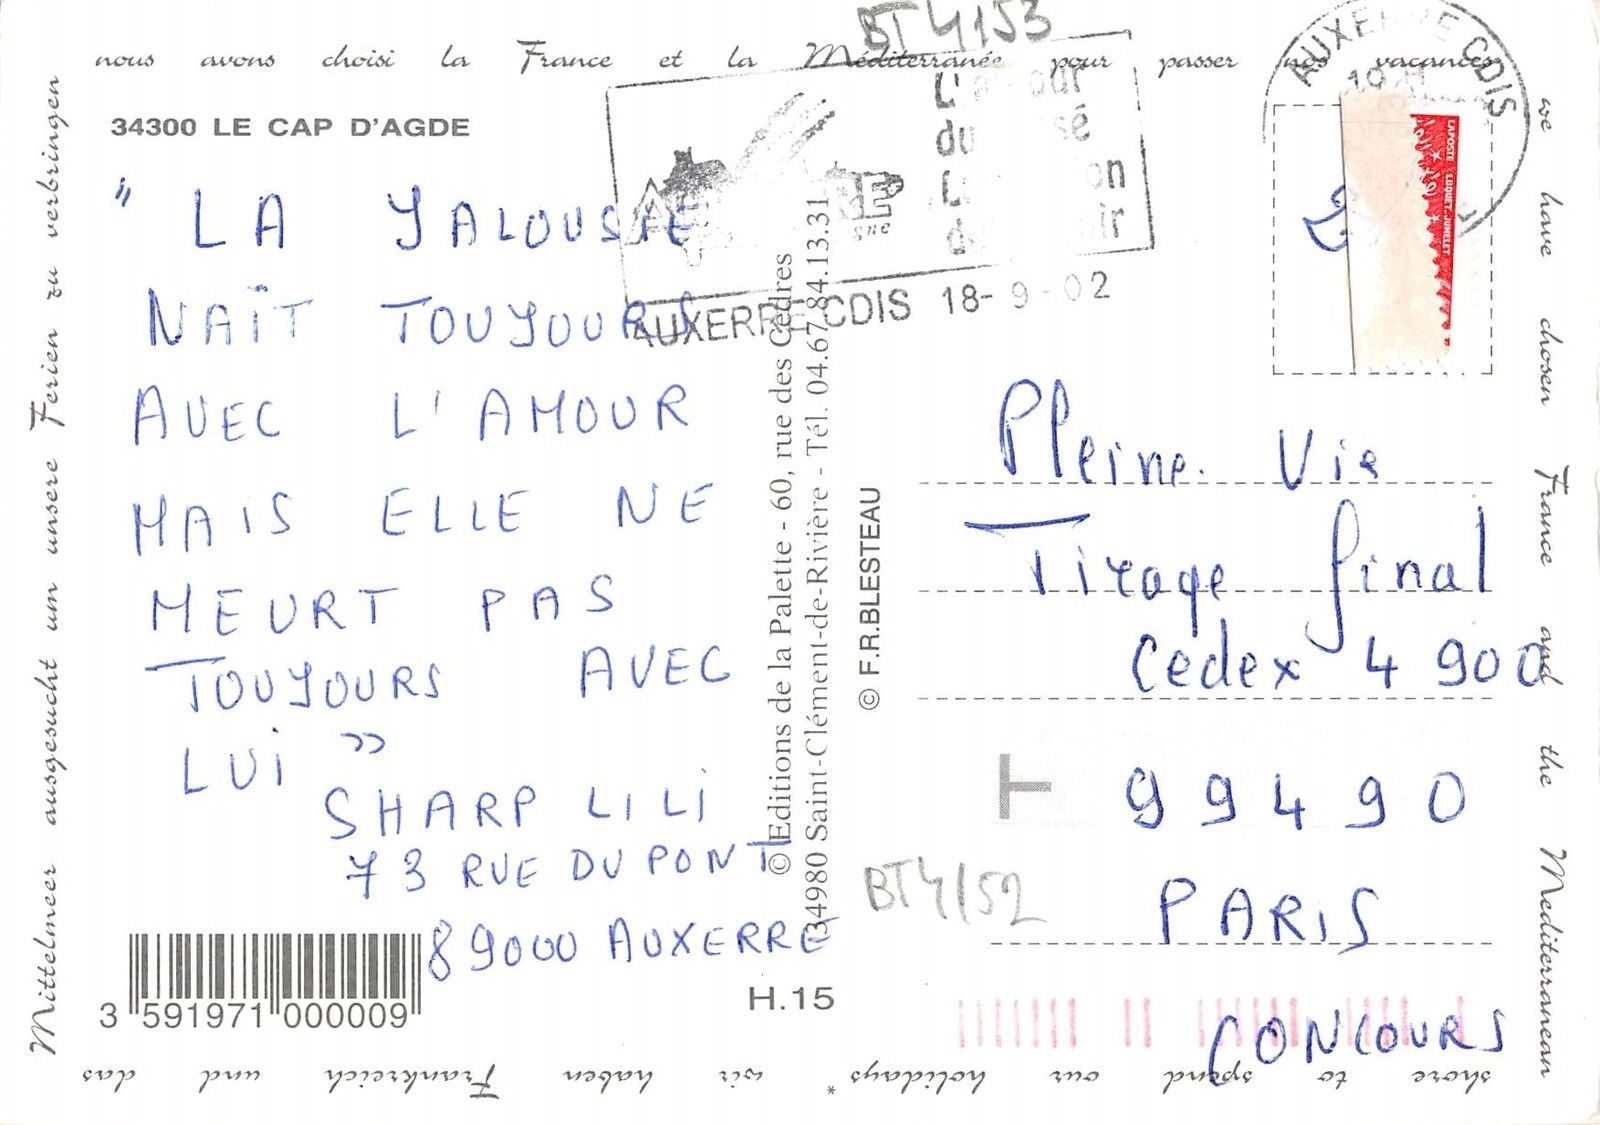 BT 4153
nous avons choisi la France et la Méditerranée pour passer nos vacances
34300 LE CAP D'AGDE
AUXERRE CDIS 18-9-02
AUXERRE CDIS
LAPOSTE LUQUET-JUMELET
" LA JALOUSIE
NAÎT TOUJOURS
AVEC L'AMOUR
MAIS ELLE NE
MEURT PAS
TOUJOURS AVEC
LUI "
SHARP LILI
73 RUE DU PONT
89000 AUXERRE
3 591971 000009
© Editions de la Palette - 60, rue des Cèdres
34980 Saint-Clément-de-Rivière - Tél. 04.67.84.13.31
© F.R.BLESTEAU
H.15
Pleine Vie
Tirage final
Cedex 4 900
T 99490
PARIS
BT 4152
CONCOURS
we have chosen France and the Mediterranean
shore to spend our holidays * wir haben Frankreich und das
Mittelmeer ausgesucht um unsere Ferien zu verbringen